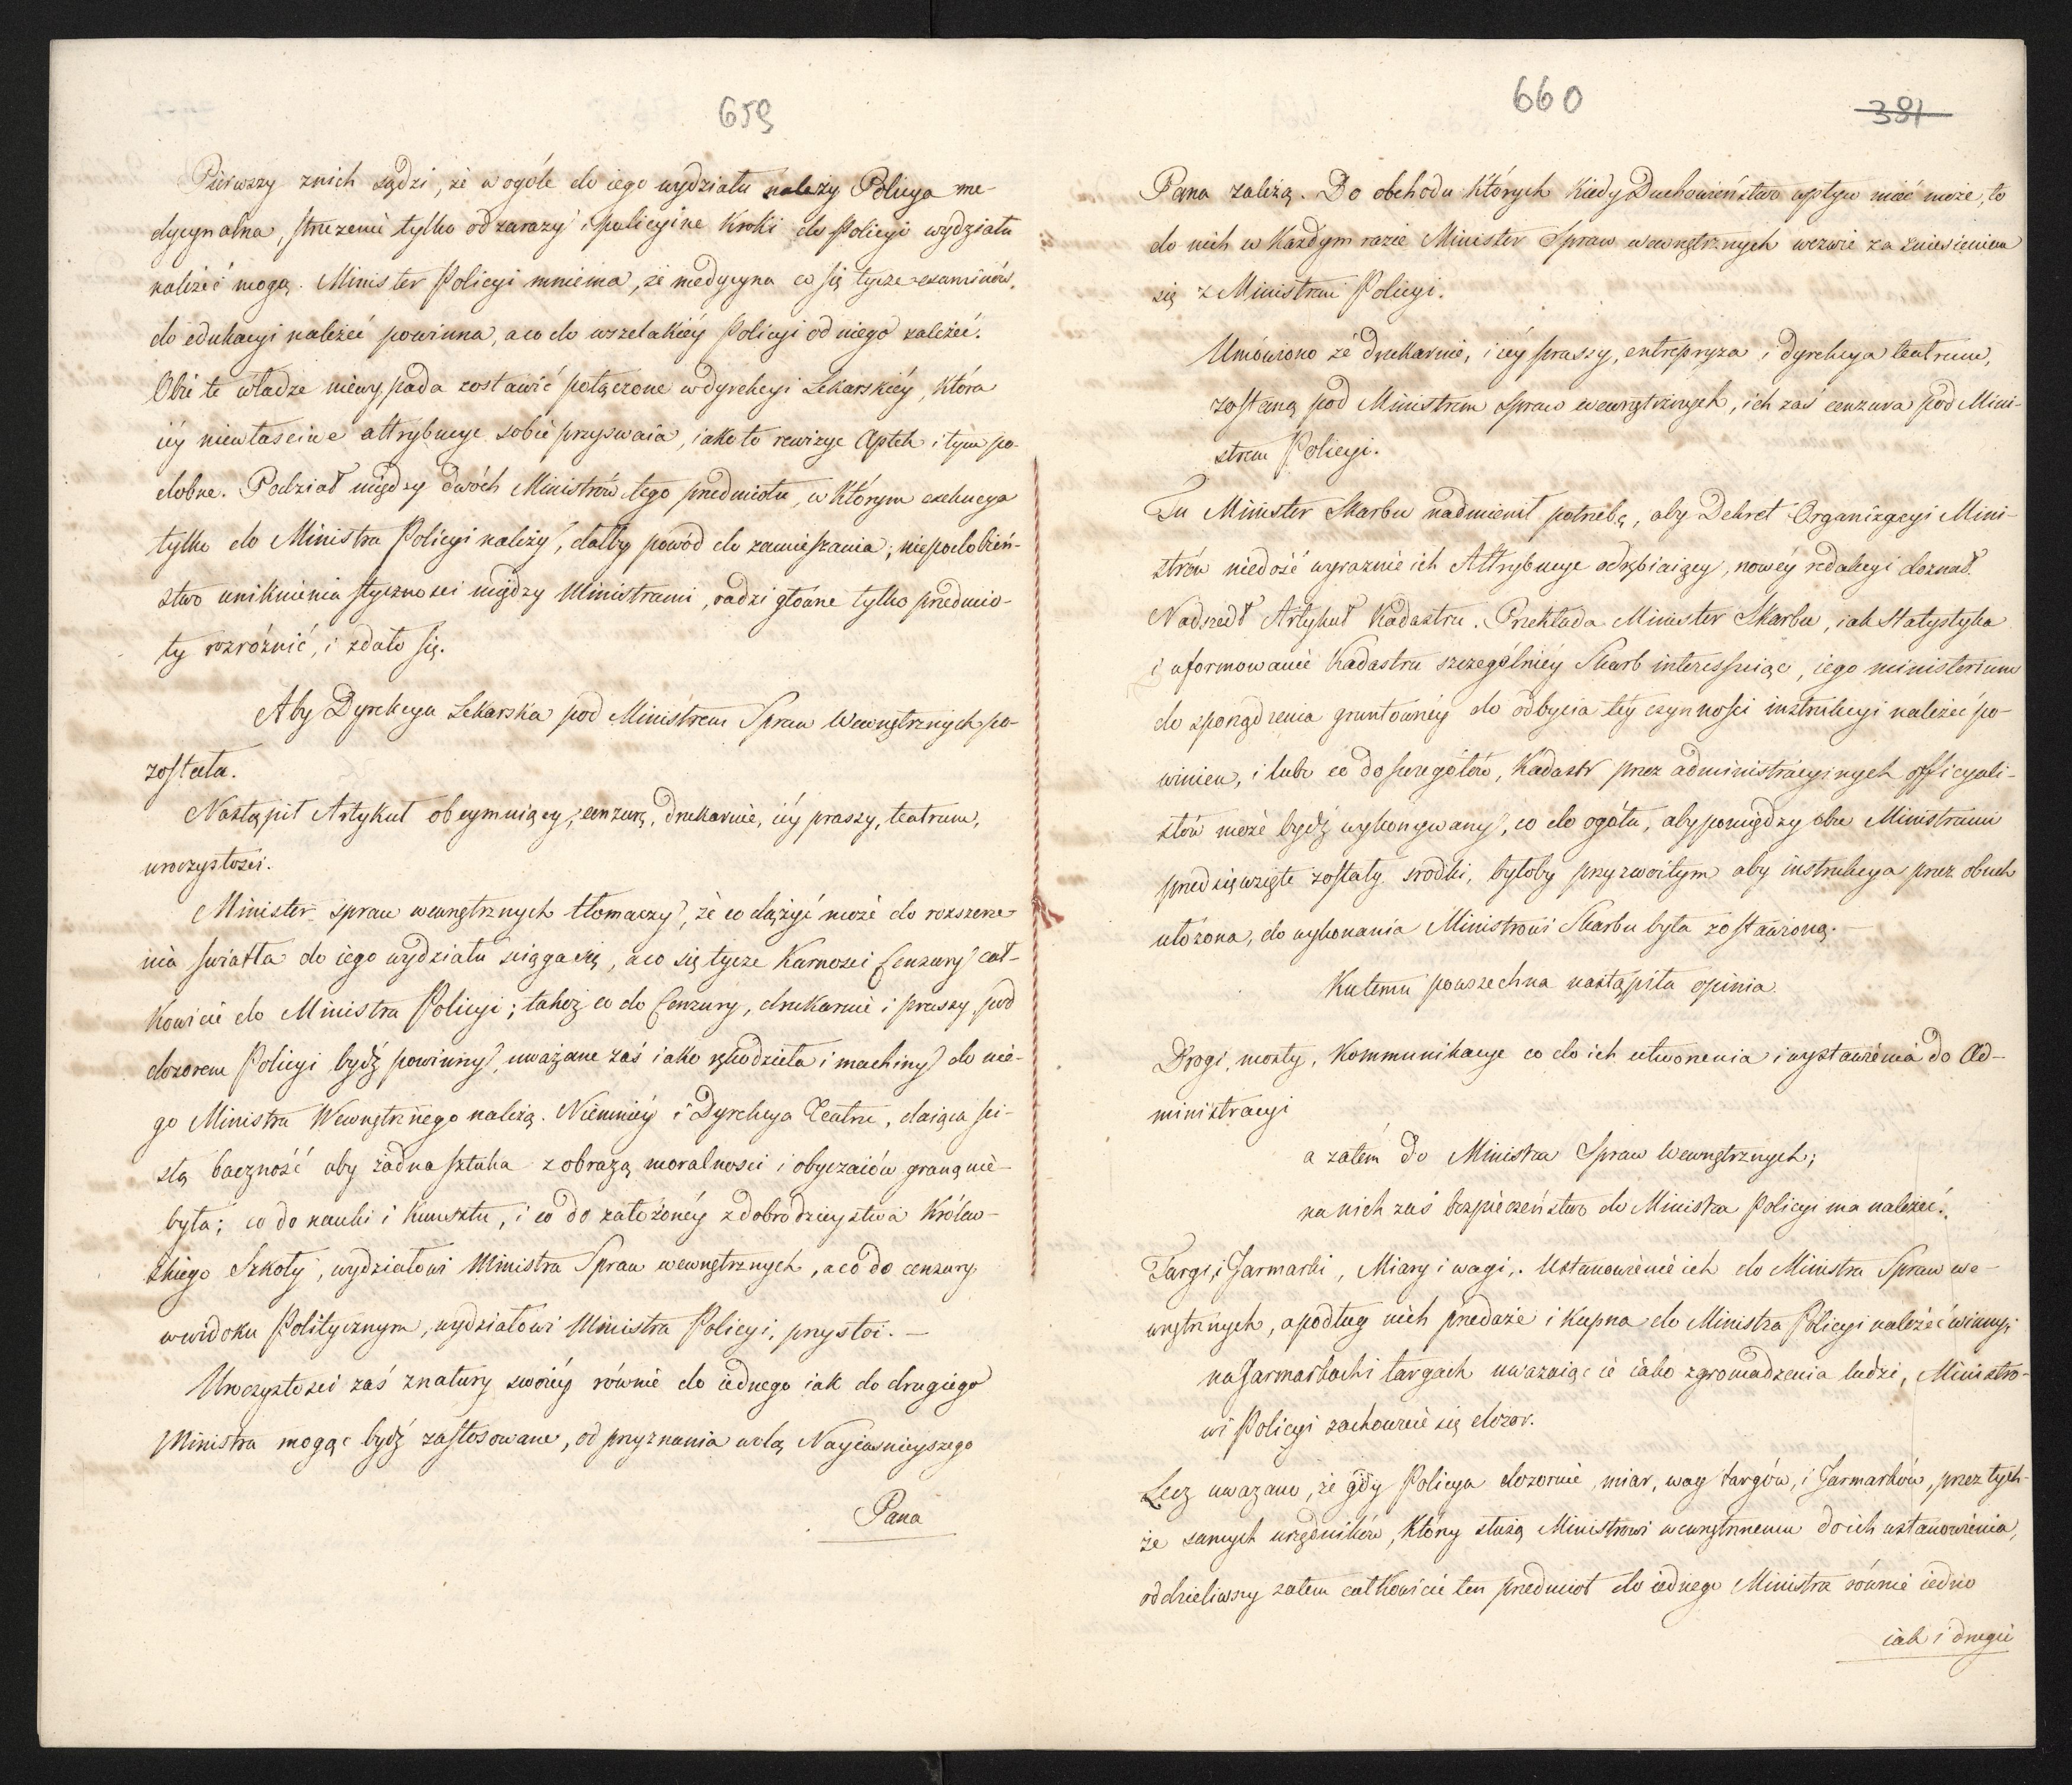 659
Pierwszy znich sądzi, że w ogóle do iego wydziału należy Policya me-
dycynalna, strzeżenie tylko od zarazy i policyine kroki do Policyi wydziału
należeć mogą. Minister Policyi mniema, że medycyna co się tycze examinów,
do edukacyi należeć powinna, a co do wszelakiéy Policyi od niego zależeć.
Obie te władze niewypada zostawić połączone w dyrekcyi Lekarskiéy, która
iéy niewłaściwe attrybucye sobie przyswaia, iako to rewizye Aptek i tym po-
dobne. Podział między dwóch Ministrów tego przedmiotu, w którym exekucya
tylko do Ministra Policyi należy, dałby powód do zamieszania; niepodobień-
stwo uniknienia styczności między Ministrami, radzi główne tylko przedmio-
ty rozróżnić, i zdało się.
Aby Dyrekcya Lekarska pod Ministrem Spraw Wewnętrznych po-
została.
Nastąpił Artykuł obeymuiący, cenzurę, drukarnie, iéy prassy, teatrum,
uroczystości.
Minister spraw wewnętrznych tłomaczy, że co dążyć może do rozszerze-
nia światła do iego wydziału ściąga się, a co się tycze karności Cenzury cał-
kowicie do Ministra Policyi; takoż co do Cenzury, drukarnie i prassy pod
dozorem Policyi bydź powinny, uważane zaś iako rękodzieła i machiny do nie-
go Ministra Wewnętrznego należą. Niemniéy i Dyrekcya Teatru, daiąca ści-
słą baczność aby żadna sztuka z obrazą moralności i obyczaiów graną nie-
była; co do nauki i kunsztu, i co do założonéy z dobrodzieystwa Królew-
skiego Szkoły, wydziałowi Ministra Spraw wewnętrznych, a co do cenzury
w widoku Politycznym, wydziałowi Ministra Policyi, przystoi. —
Uroczystości zaś z natury swoiéy równie do iednego iak do drugiego
Ministra mogąc bydź zastosowane, od przyznania wolą Nayiaśnieyszego
Pana
660
381
Pana zależą. Do obchodu których kiedy Duchowieństwo wpływ mieć może, to
do nich w każdym razie Minister Spraw wewnętrznych wezwie za zniesieniem
się z Ministrem Policyi.
Umówiono że drukarnie, i iéy prassy, entrepryza i dyrekcya teatrum,
zostaną pod Ministrem Spraw wewnętrznych, ich zaś cenzura pod Mini-
strem Policyi.
Tu Minister Skarbu nadmienił potrzebę, aby Dekret Organizacyi Mini-
strów niedość wyraźnie ich Attrybucye odrębiaiący, nowéy redakcyi doznał.
Nadszedł Artykuł Kadastru. Przekłada Minister Skarbu, iak Statystyka
i uformowanie Kadastru szczególniéy Skarb interessuiąc, iego ministerium
do sporządzenia gruntownéy do odbycia téy czynności instrukcyi należeć po-
winien, i lubo co do szczegółów, Kadastr przez administracyinych officyali-
stów może bydź wykonywany, co do ogółu, aby pomiędzy obu Ministrami
przedsięwzięte zostały środki, byłoby przyzwoitym aby instrukcya przez obuch
ułożona, do wykonania Ministrowi Skarbu była zostawioną. —
Ku temu powszechna nastąpiła opinia.
Drogi, mosty, kommunikacye co do ich utworzenia i wystawienia do Ad-
ministracyi
a zatém do Ministra Spraw Wewnętrznych;
na nich zaś bezpieczeństwo do Ministra Policyi ma należeć.
Targi, i Jarmarki, Miary i wagi,. Ustanowienie ich do Ministra Spraw we-
wnętrznych, a podług nich przedaże i kupna do Ministra Policyi należeć winny;
na Jarmarkach i targach uważaiąc ie iako zgromadzenia ludzi, Ministro-
wi Policyi zachowuie się dozor.
Lecz uważano, że gdy Policya dozoruie, miar, wag targów, i Jarmarków, przez tych-
że samych urzędników, którzy służą Ministrowi wewnętrznemu do ich ustanowienia,
oddzieliwszy zatem całkowicie ten przedmiot do iednego Ministra równie iedno
iak i drugie